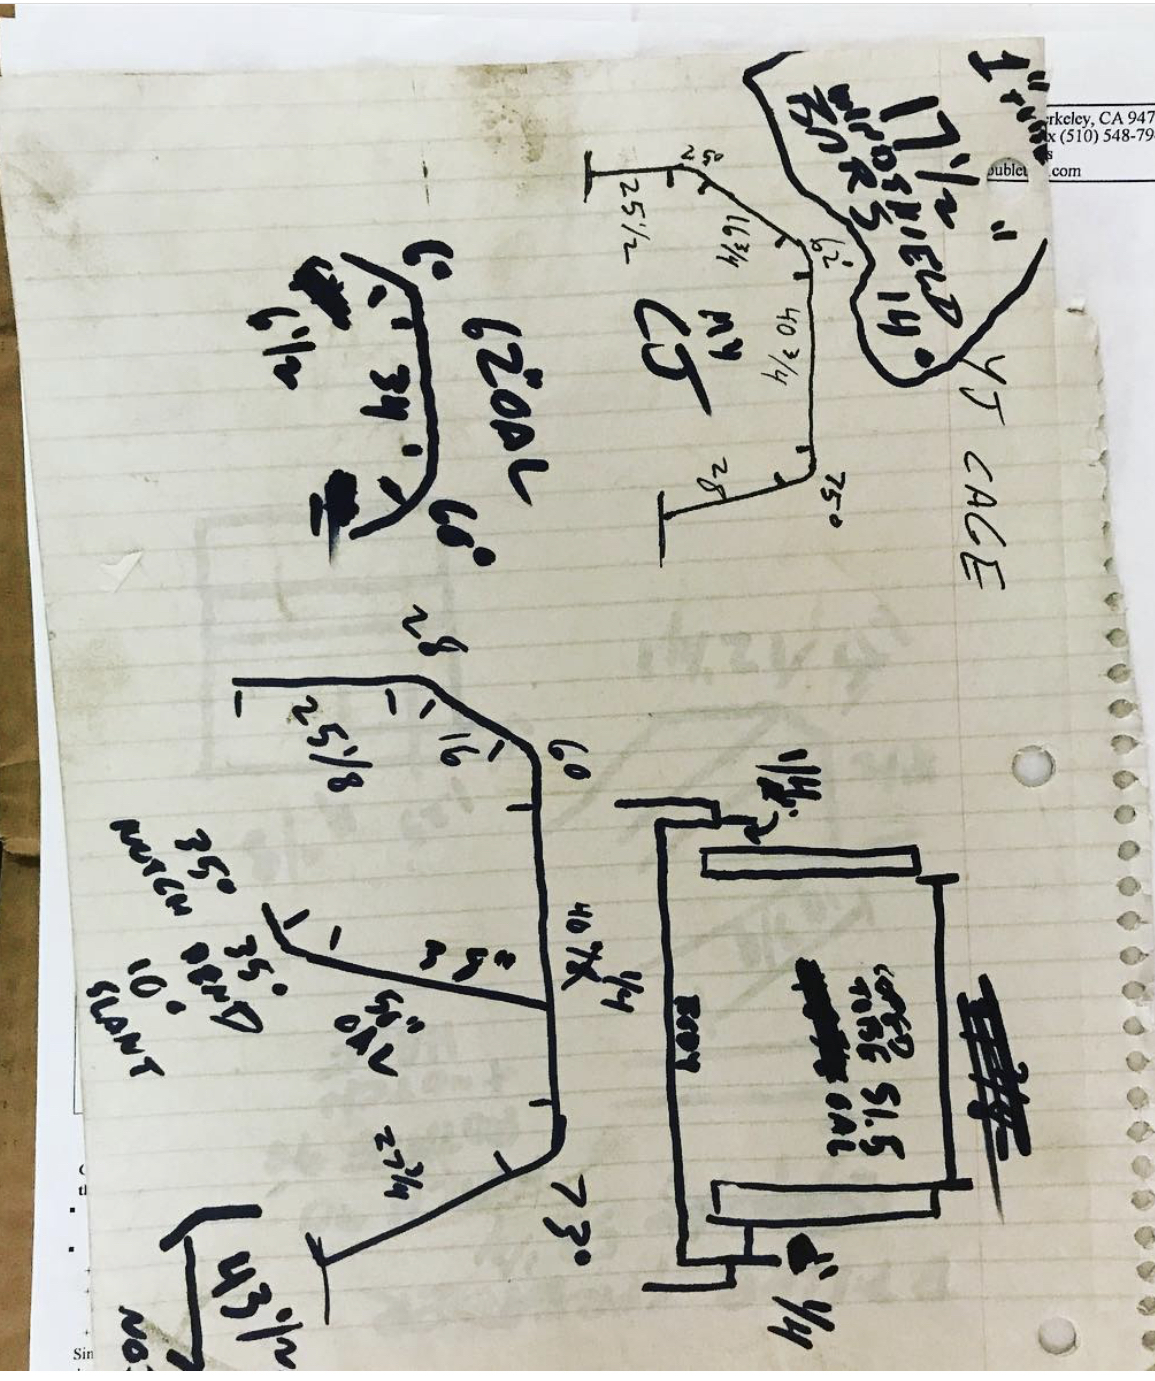 1"
17 1/2"
WINDSHIELD
BURS
14°
YJ CAGE
rkeley, CA 947
x (510) 548-79
s
oublet .com
25 1/2
16 3/4
62°
40 3/4
75°
28
MY
CJ
60
62" OAL
34
6 1/2
60°
28
25 1/8
16
60
40 1/4
73°
27 3/4
35°
NOTCH
35°
BEND
10°
SLANT
OAL
1/4"
BODY
TUBE 51.5
OAL
1/4
43 1/2
NO
Sin